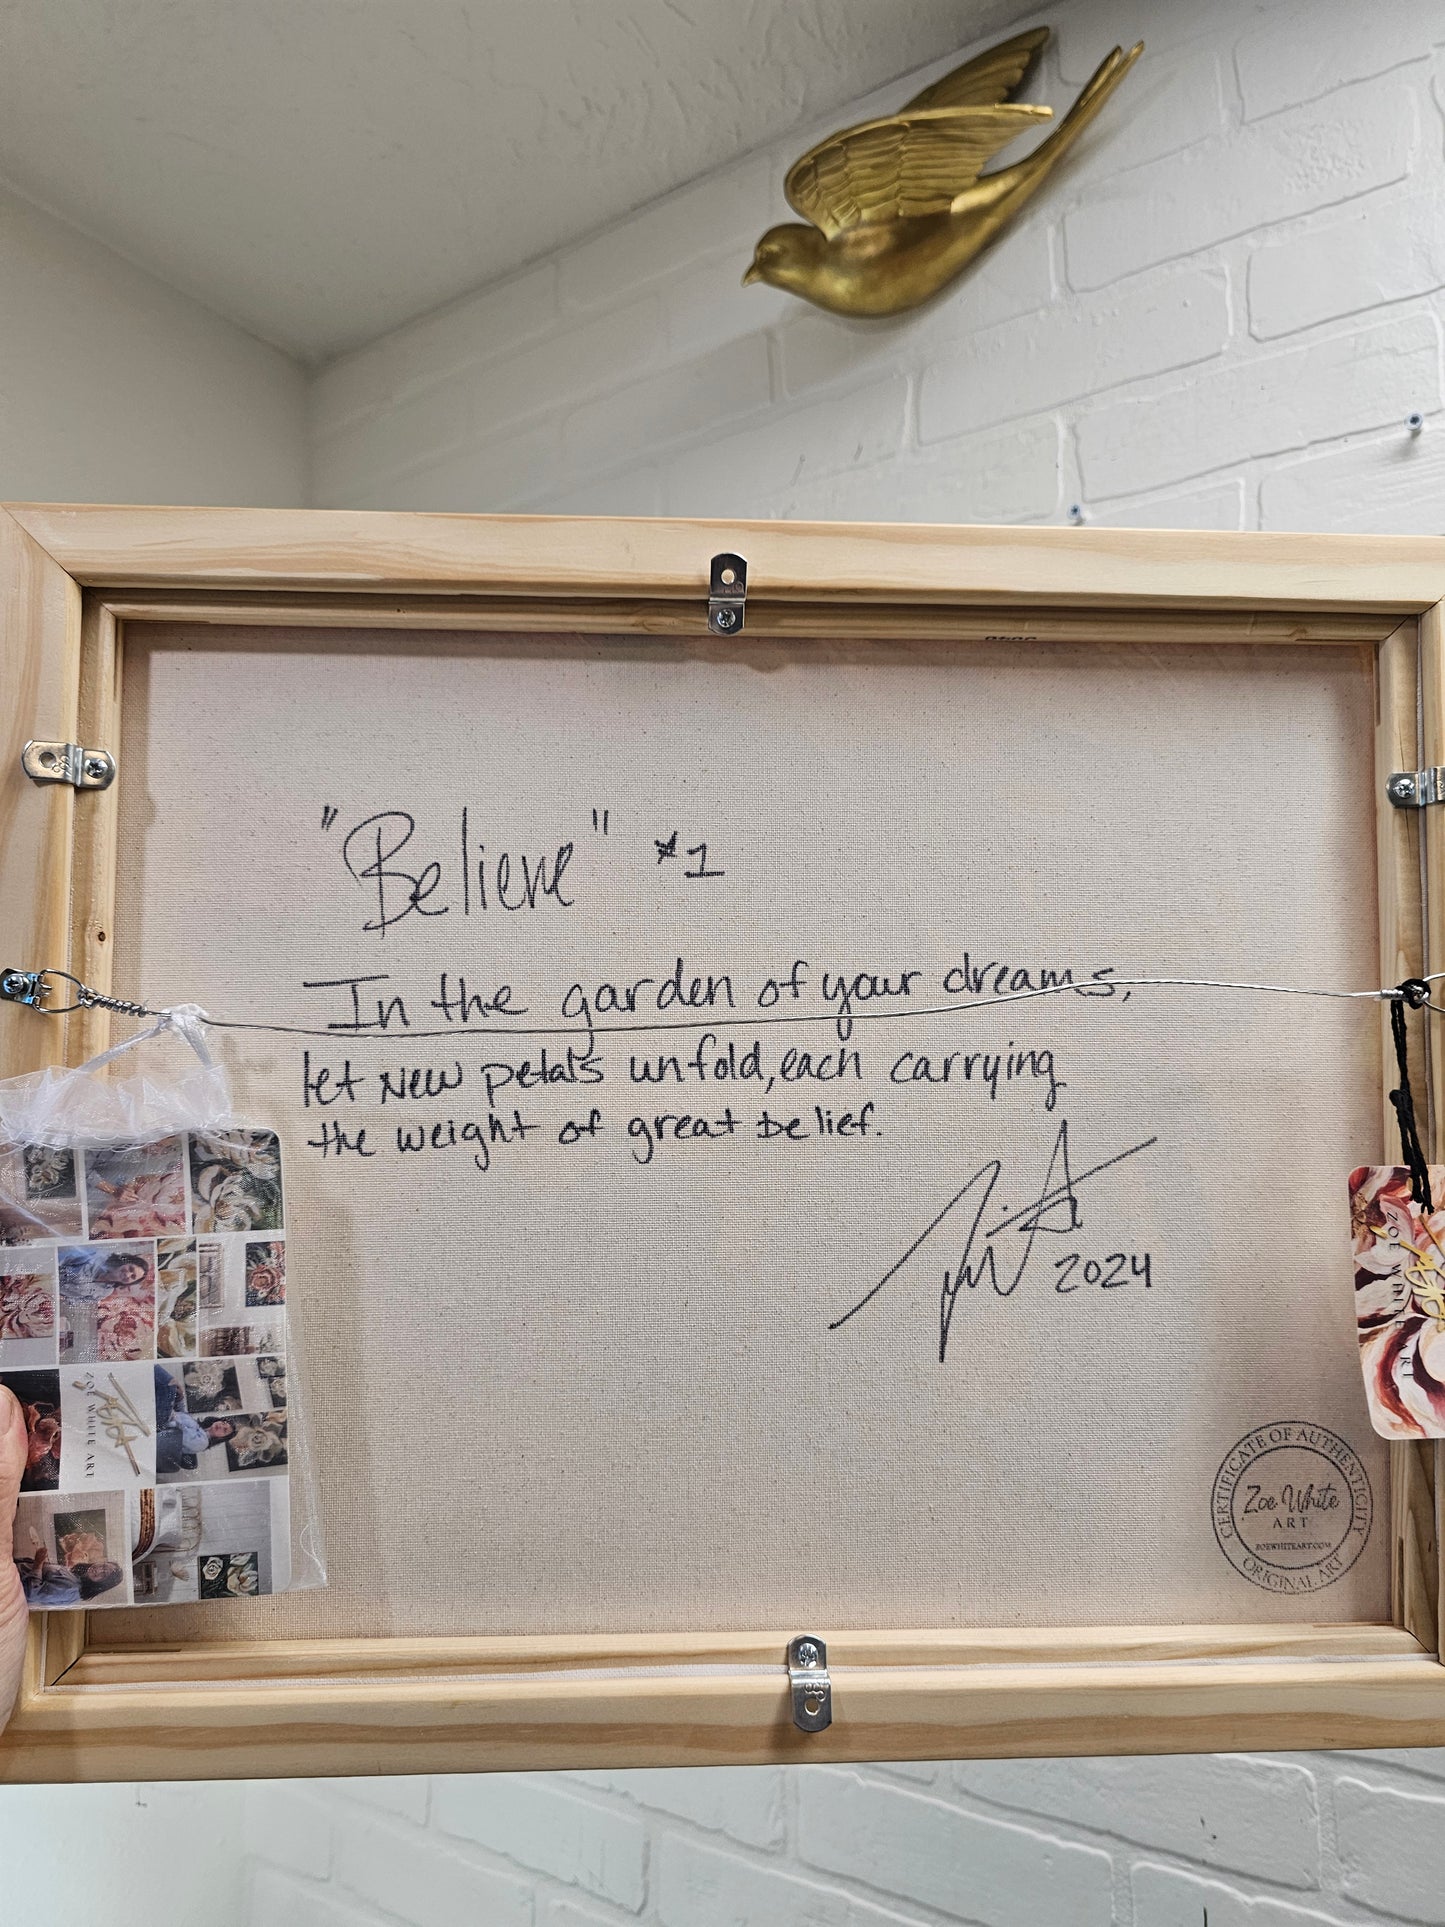 "Believe" #1
In the garden of your dreams,
let new petals unfold, each carrying
the weight of great belief.
2024
ZOE WHITE ART
ZOE WHITE ART
CERTIFICATE OF AUTHENTICITY
Zoe White
ART
ZOEWHITEART.COM
ORIGINAL ART